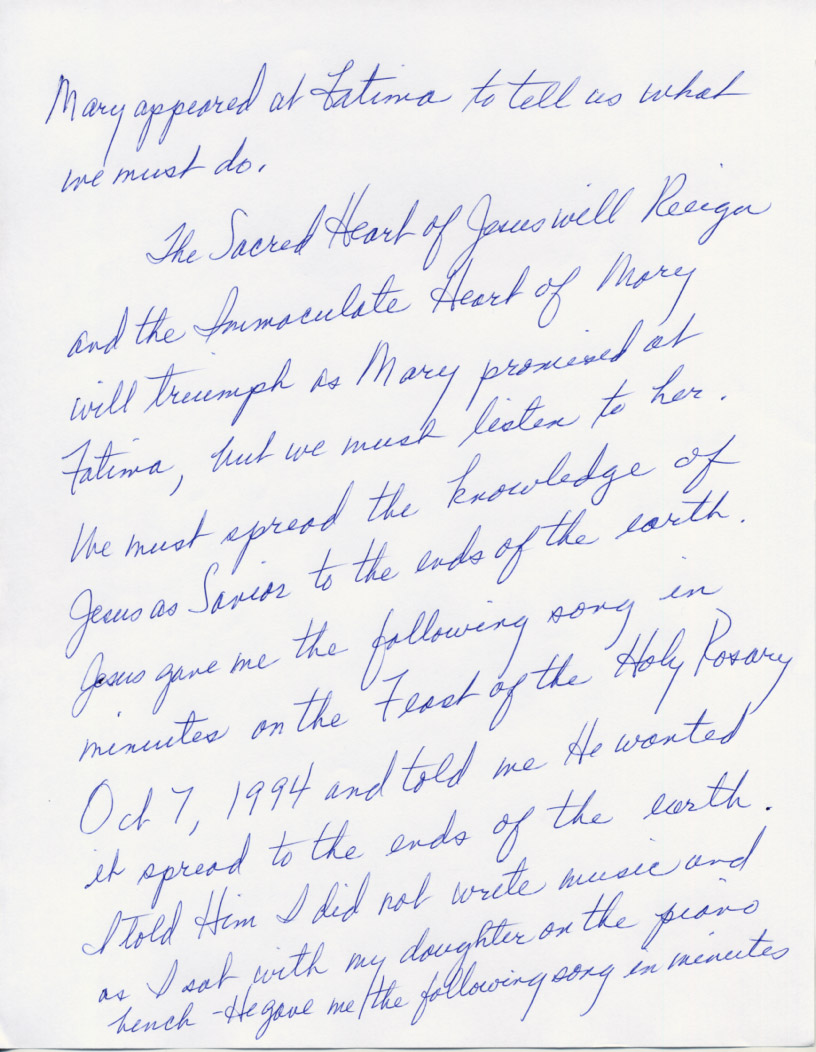 Mary appeared at Fatima to tell us what
we must do.
The Sacred Heart of Jesus will Reign
and the Immaculate Heart of Mary
will triumph as Mary promised at
Fatima, but we must listen to her.
We must spread the knowledge of
Jesus as Savior to the ends of the earth.
Jesus gave me the following song in
minutes on the Feast of the Holy Rosary
Oct 7, 1994 and told me He wanted
it spread to the ends of the earth.
I told Him I did not write music and
as I sat with my daughter on the piano
bench - He gave me/the following song in minutes